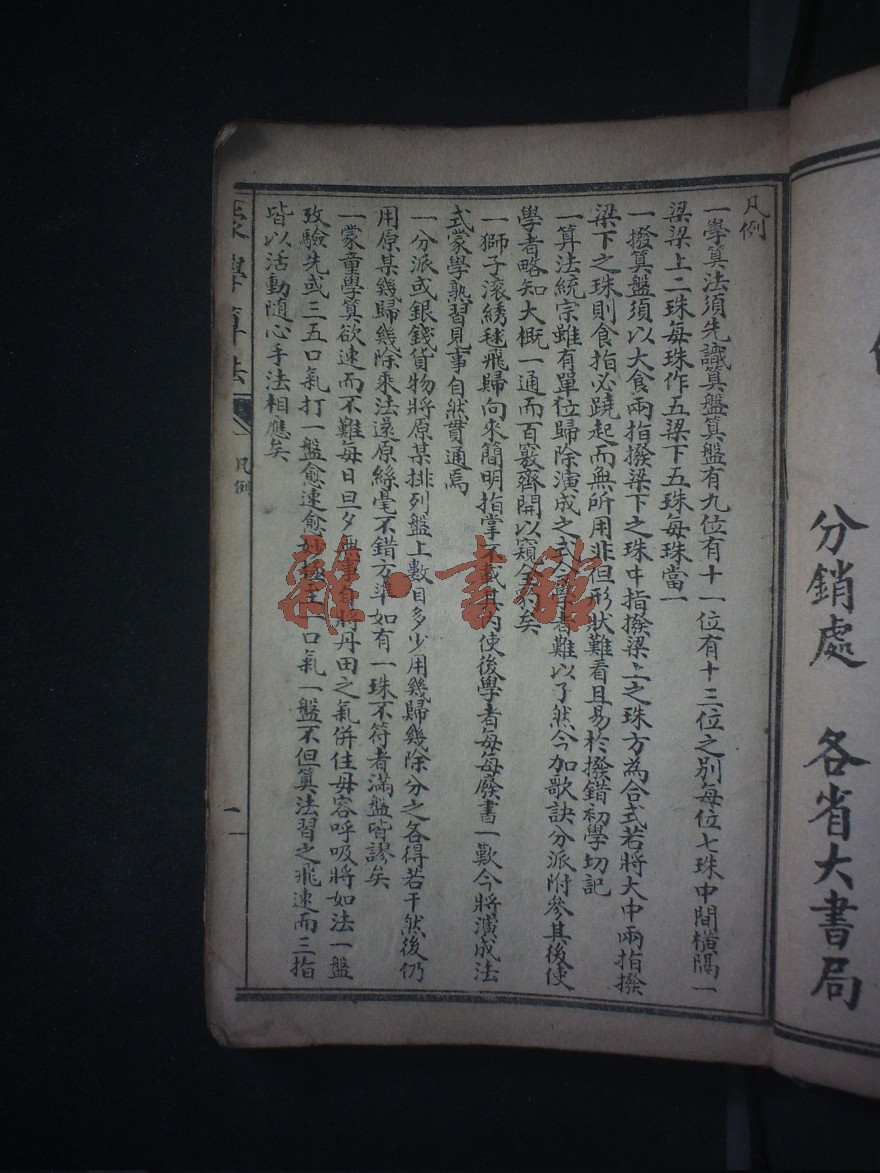 分銷處　各省大書局
凡例
一學算法須先識算盤算盤有九位有十一位有十三位之別每位七珠中間橫隔一
梁梁上二珠每珠作五梁下五珠每珠當一
一撥算盤須以大食兩指撥梁下之珠中指撥梁上之珠方為合式若將大中兩指撥
梁下之珠則食指必蹺起而無所用非但形狀難看且易於撥錯初學切記
一算法統宗雖有單位歸除演成之式今學者難以了然今加歌訣分派附參其後使
學者略知大概一通而百竅齊開以窺全矣
一獅子滾綉毬飛歸向來簡明指掌不載其內使後學者每每廢書一歎今將演成法
式蒙學熟習見事自然貫通焉
一分派或銀錢貨物將原某排列盤上數目多少用幾歸幾除分之各得若干然後仍
用原某幾歸幾除乘法還原絲毫不錯方準如有一珠不符者滿盤皆謬矣
一蒙童學算欲速而不難每日旦夕無事自將丹田之氣併住毋容呼吸將如法一盤
攷驗先或三五口氣打一盤愈速愈妙一口氣一盤不但算法習之飛速而三指
皆以活動隨心手法相應矣
蒙學算法
凡例
一
雜·書館